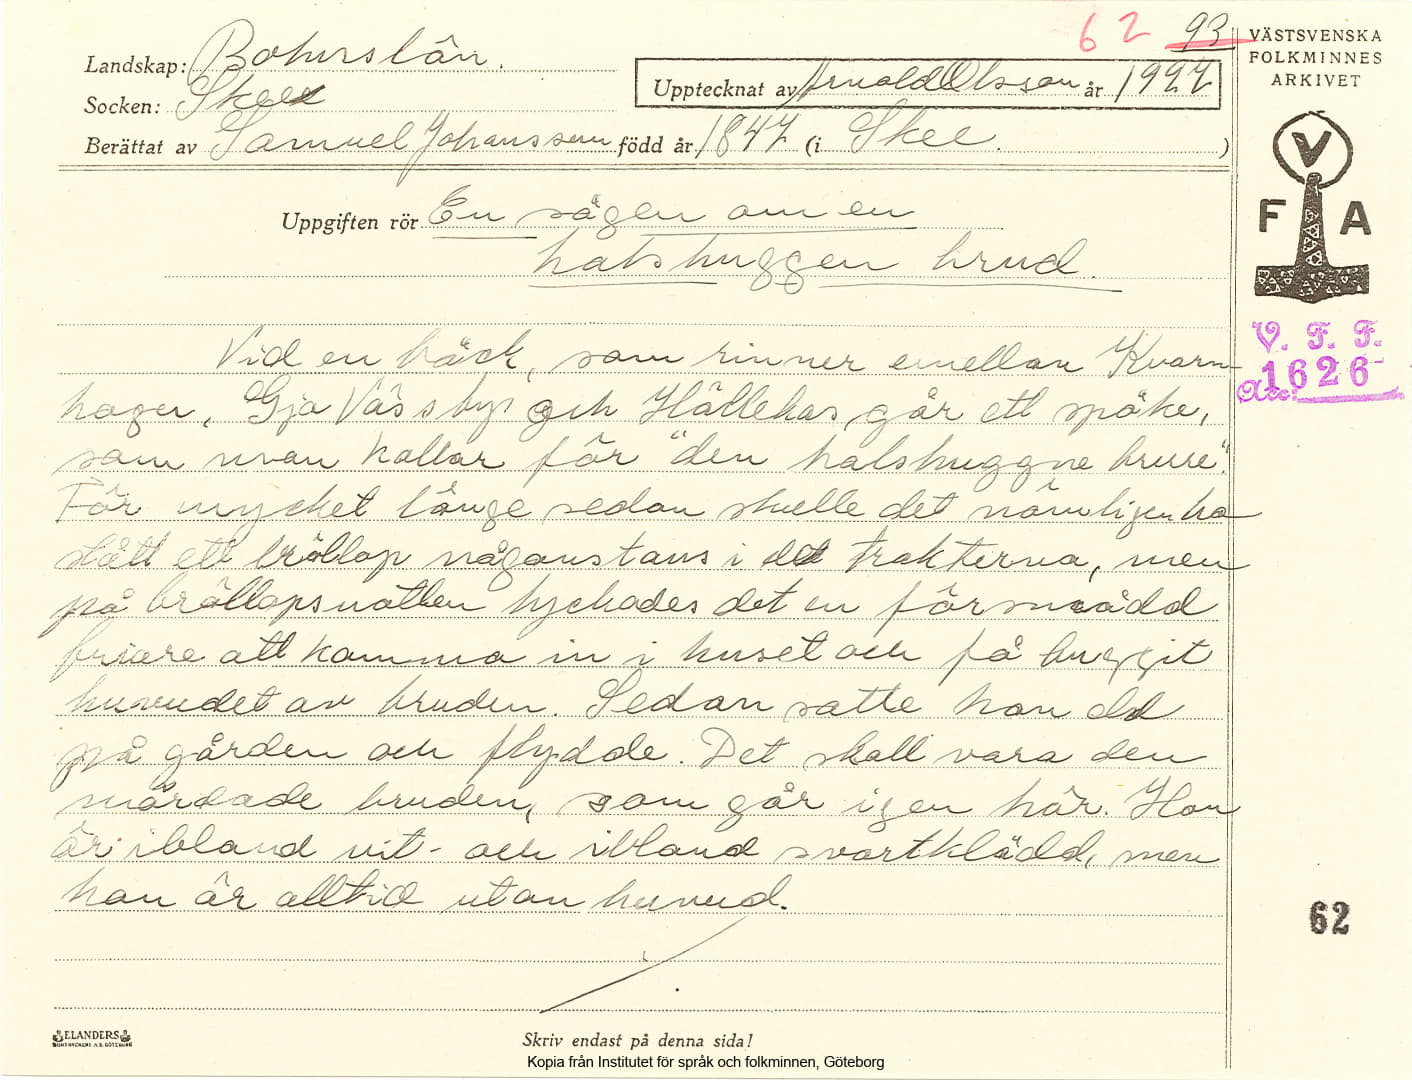 62 93
VÄSTSVENSKA
FOLKMINNES
ARKIVET
Landskap: Bohuslän.
Upptecknat av Arnold Olsson år 1927
Socken: Skee
Berättat av Samuel Johansson född år 1847 (i Skee. )
V
F A
Uppgiften rör En sägen om en
halshuggen brud.
V. F. F.
Acc: 1626
Vid en bäck, som rinner emellan Kvarn-
hagen, Gja Vässby och Hällekas, går ett spöke,
som man kallar för "den halshuggne brure".
För mycket länge sedan skulle det nämligen ha
stått ett bröllop någonstans i det trakterna, men
på bröllopsnatten lyckades det en försmådd
friare att komma in i huset och få huggit
huvudet av bruden. Sedan satte han eld
på gården och flydde. Det skall vara den
mördade bruden, som går igen här. Hon
är ibland vit- och ibland svartklädd, men
hon är alltid utan huvud.
62
ELANDERS
Skriv endast på denna sida!
Kopia från Institutet för språk och folkminnen, Göteborg